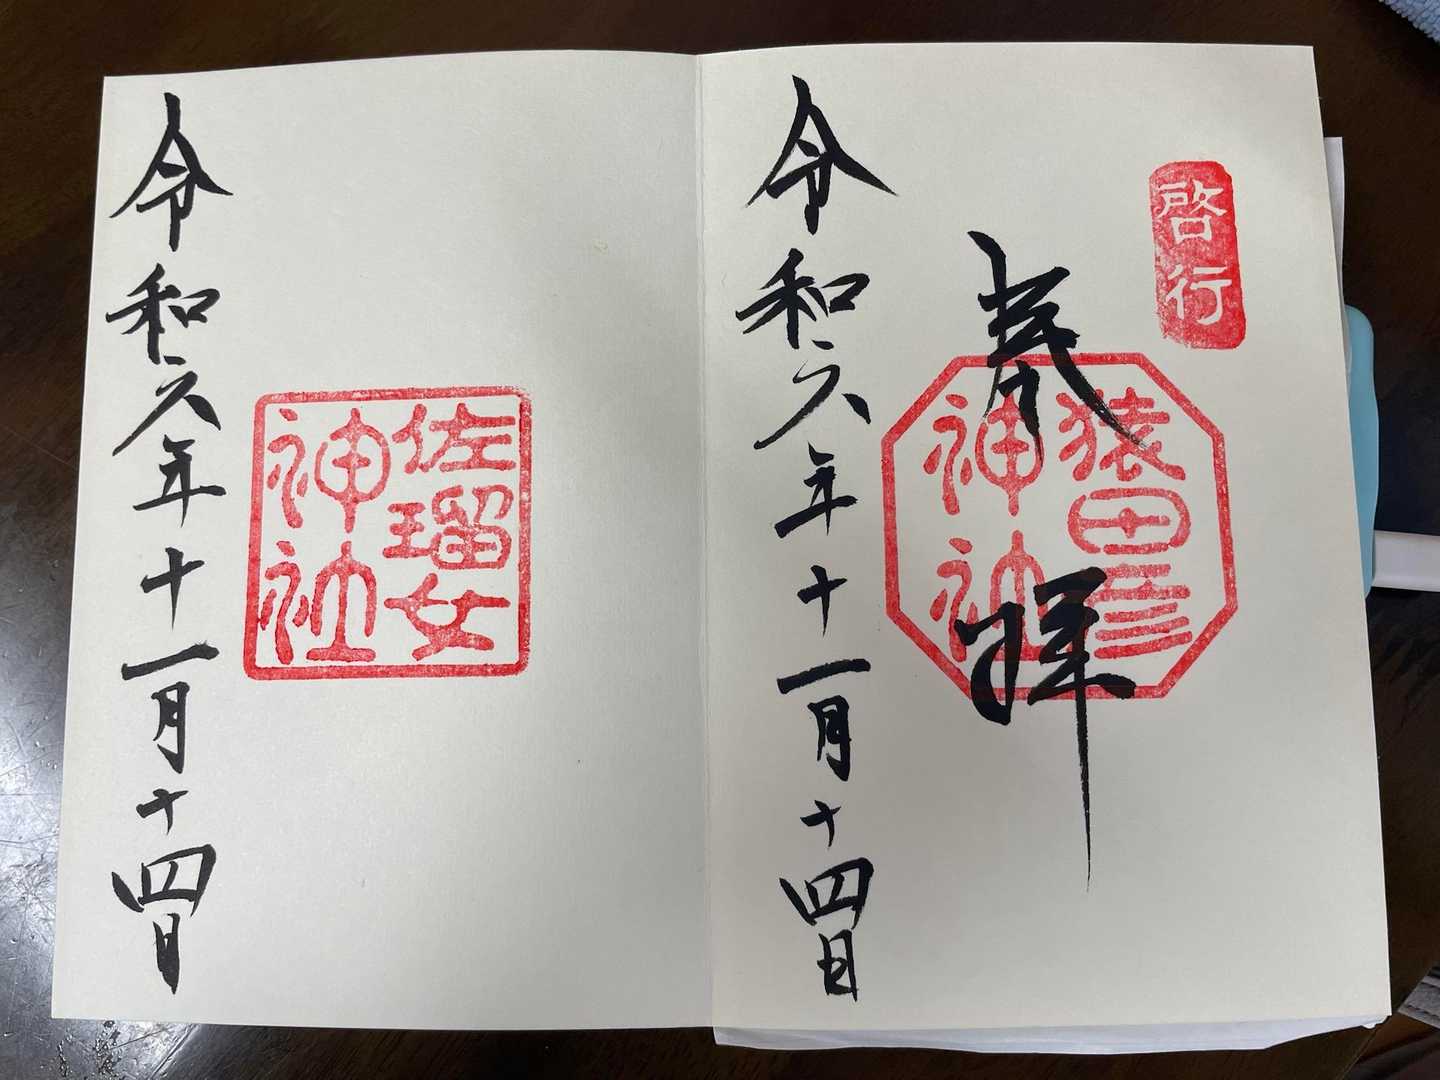 啓行
奉拝
猿田彦
神社
令和六年十一月十四日
佐瑠女
神社
令和六年十一月十四日